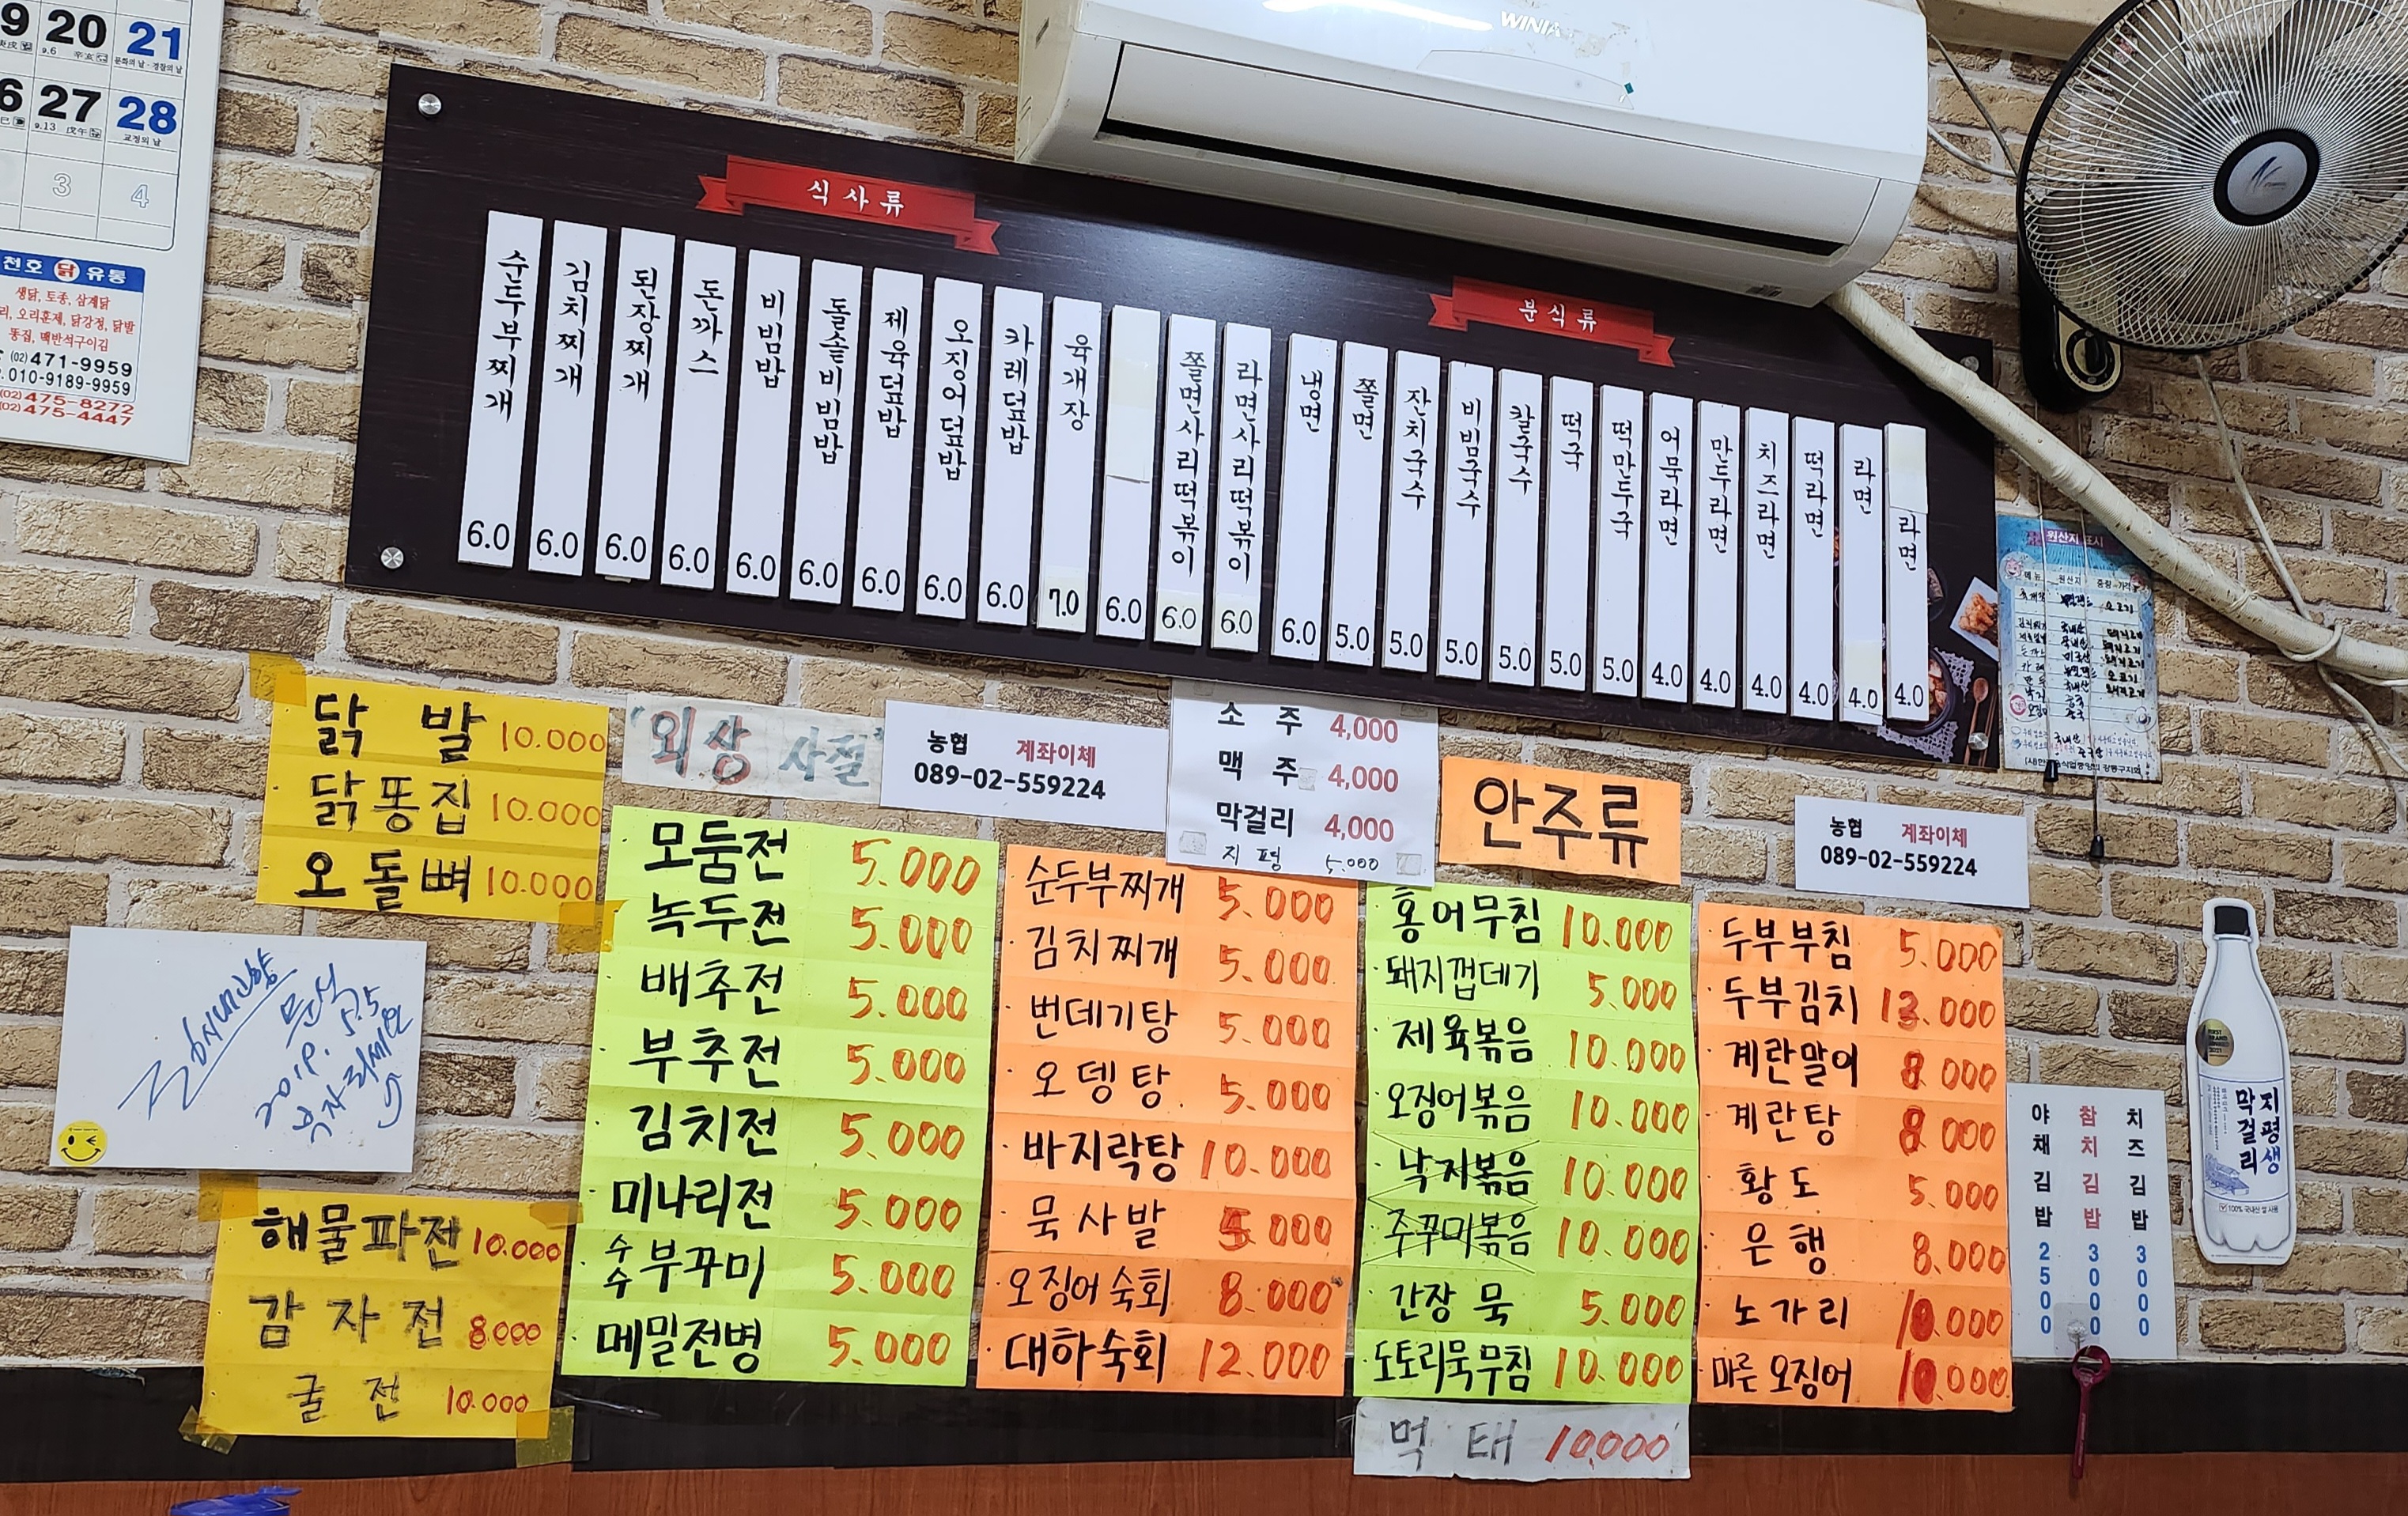 20 21
9.6 辛亥
문화의 날·경찰의 날
27 28
9.13 戊午
교정의 날
3 4
천호 닭 유통
생닭, 토종, 삼계탉
오리훈제, 닭강정, 닭발
똥집, 맥반석구이김
(02)471-9959
010-9189-9959
(02)475-8272
(02)475-4447
WINIA
식사류
순두부찌개 6.0
김치찌개 6.0
된장찌개 6.0
돈까스 6.0
비빔밥 6.0
돌솥비빔밥 6.0
제육덮밥 6.0
오징어덮밥 6.0
카레덮밥 6.0
육개장 7.0
6.0
쫄면사리떡볶이 6.0
라면사리떡볶이 6.0
분식류
냉면 6.0
쫄면 5.0
잔치국수 5.0
비빔국수 5.0
칼국수 5.0
떡국 5.0
떡만두국 5.0
어묵라면 4.0
만두라면 4.0
치즈라면 4.0
떡라면 4.0
라면 4.0
라면 4.0
원산지 표시
메뉴 원산지
닭 발 10.000
닭똥집 10.000
오돌뼈 10.000
"외상 사절"
농협 계좌이체
089-02-559224
소 주 4,000
맥 주 4,000
막걸리 4,000
지평 5.000
안주류
농협 계좌이체
089-02-559224
모둠전 5.000
녹두전 5.000
배추전 5.000
부추전 5.000
김치전 5.000
미나리전 5.000
수수부꾸미 5.000
메밀전병 5.000
순두부찌개 5.000
김치찌개 5.000
번데기탕 5.000
오뎅탕 5.000
바지락탕 10.000
묵사발 5.000
오징어숙회 8.000
대하숙회 12.000
홍어무침 10.000
돼지껍데기 5.000
제육볶음 10.000
오징어볶음 10.000
낙지볶음 10.000
주꾸미볶음 10.000
간장 묵 5.000
도토리묵무침 10.000
먹 태 10,000
두부부침 5.000
두부김치 13.000
계란말이 8.000
계란탕 8.000
황도 5.000
은행 8.000
노가리 10.000
마른오징어 10.000
6시내고향
해물파전 10.000
감자전 8.000
굴전 10.000
야채김밥 2500
참치김밥 3000
치즈김밥 3000
지평생
막걸리
100% 국내산 쌀 사용